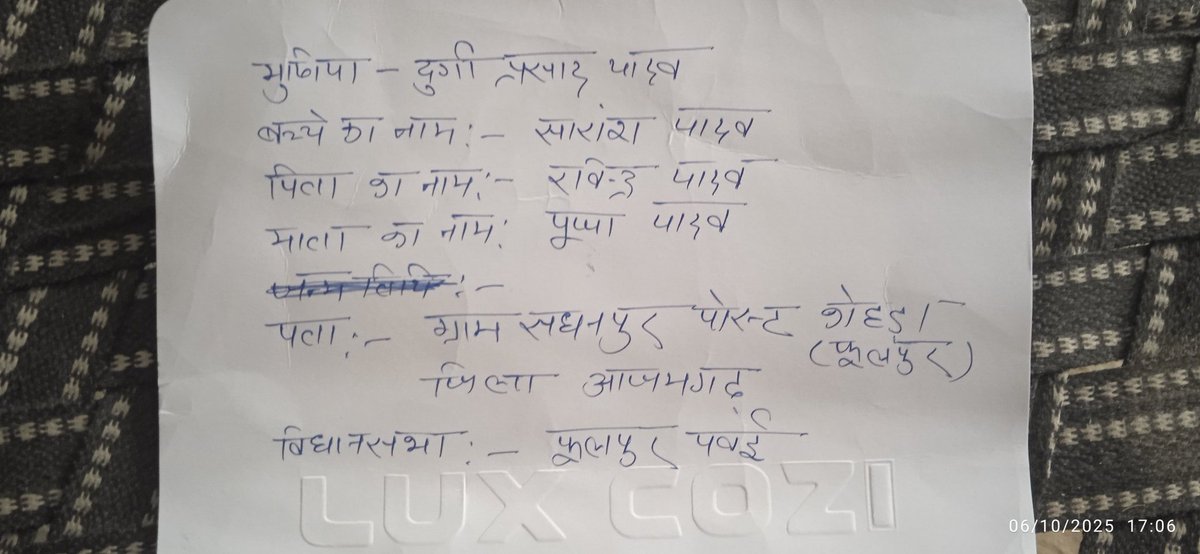 मुखिया - दुर्गा प्रसाद यादव
बच्चे का नाम :- सारांश यादव
पिता का नाम :- रविन्द्र यादव
माता का नाम : पुष्पा यादव
जन्म तिथि :-
पता :- ग्राम सधनपुर पोस्ट कोहड़ा
(फूलपुर)
जिला आजमगढ़
विधानसभा :- फूलपुर पवई
LUX COZI
06/10/2025 17:06